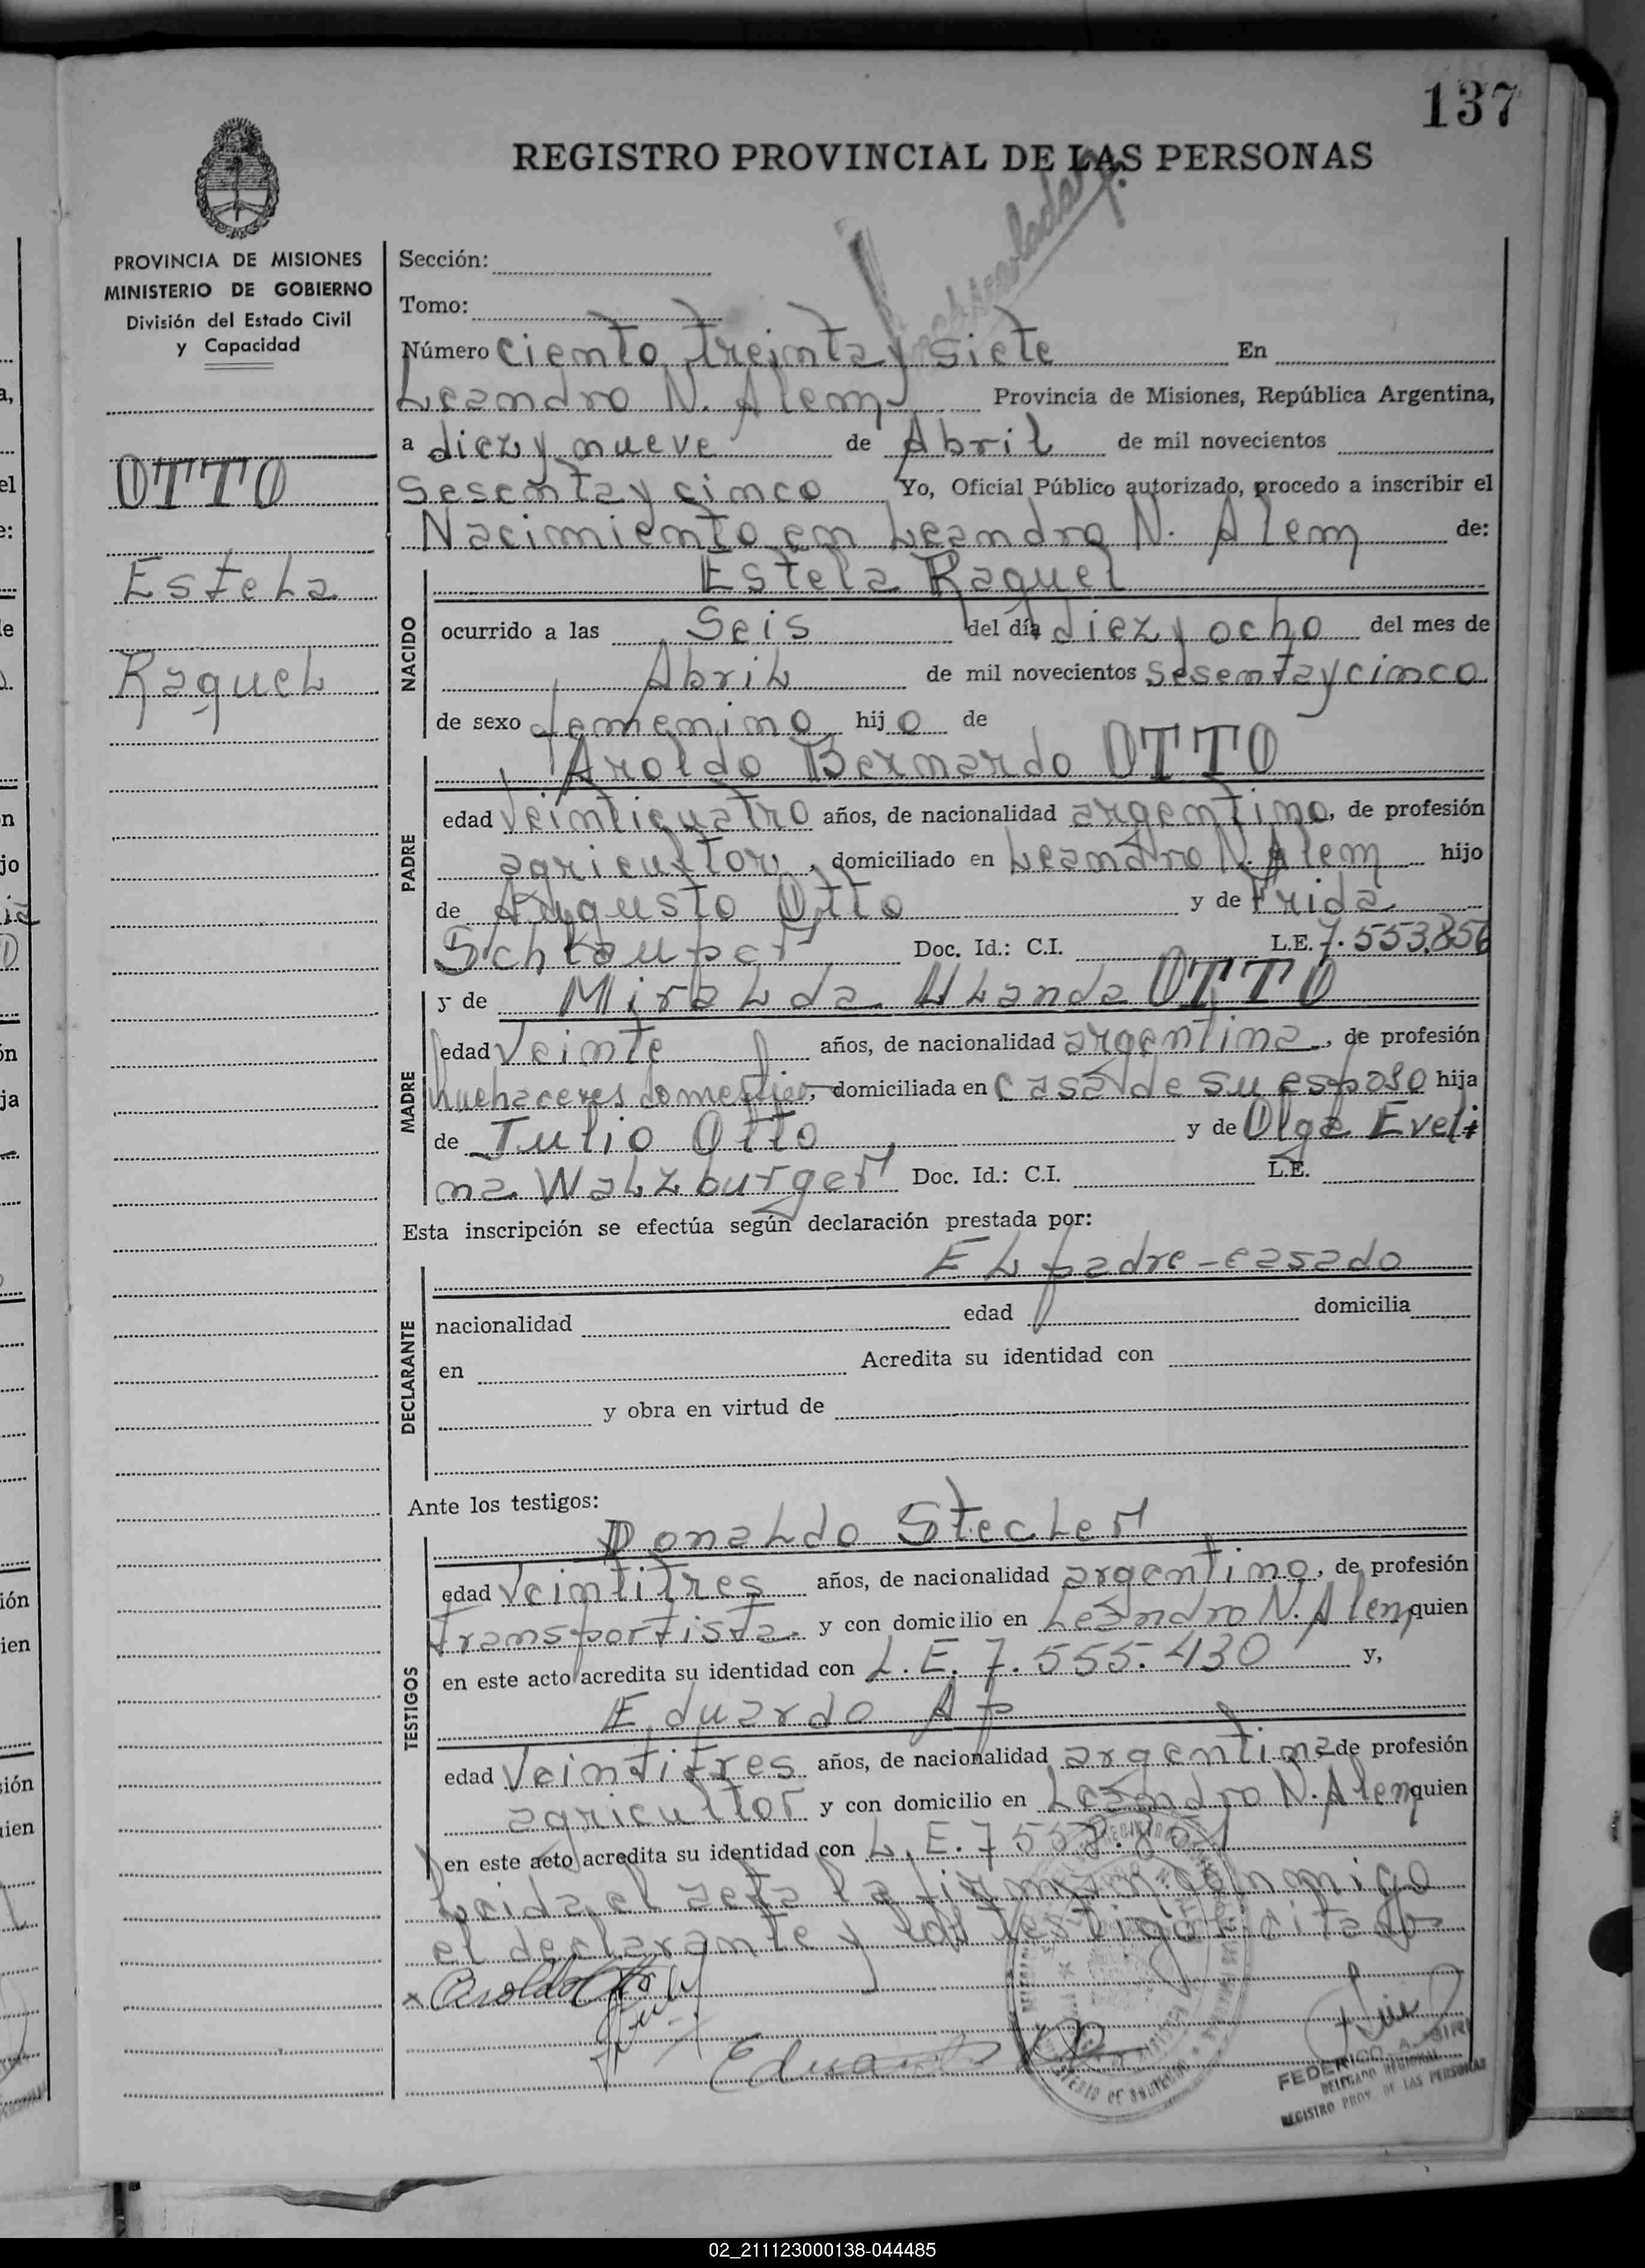 137
REGISTRO PROVINCIAL DE LAS PERSONAS
PROVINCIA DE MISIONES
MINISTERIO DE GOBIERNO
División del Estado Civil
y Capacidad
OTTO
Estela
Raquel
Sección:
Tomo:
Número ciento treinta y siete En
Leandro N. Alem Provincia de Misiones, República Argentina,
a diez y nueve de Abril de mil novecientos
sesenta y cinco Yo, Oficial Público autorizado, procedo a inscribir el
Nacimiento en Leandro N. Alem de:
NACIDO
Estela Raquel
ocurrido a las Seis del día diez y ocho del mes de
Abril de mil novecientos sesenta y cinco
de sexo femenino hijo de
PADRE
Aroldo Bernardo OTTO
edad veinticuatro años, de nacionalidad argentino, de profesión
agricultor, domiciliado en Leandro N. Alem hijo
de Augusto Otto y de Frida
Doc. Id.: C.I. L.E. 7.553.856
MADRE
y de OTTO
edad veinte años, de nacionalidad argentina, de profesión
domiciliada en casa de su esposo hija
de Julio Otto y de Olga Eveli
na Walzburger Doc. Id.: C.I. L.E.
Esta inscripción se efectúa según declaración prestada por:
DECLARANTE
El padre - casado
nacionalidad edad domicilia
en Acredita su identidad con
y obra en virtud de
Ante los testigos:
TESTIGOS
Ronaldo Stecler
edad veintitres años, de nacionalidad argentino, de profesión
transportista y con domicilio en Leandro N. Alem quien
en este acto acredita su identidad con L.E. 7.555.430 y,
Eduardo Ap
edad veintitres años, de nacionalidad argentina de profesión
agricultor y con domicilio en Leandro N. Alem quien
en este acto acredita su identidad con L.E. 7
Leida el acta la firman conmigo
el declarante y los testigos citados
Aroldo Otto
Eduardo
FEDERICO A.
DELEGADO REGIONAL
REGISTRO PROV. DE LAS PERSONAS
02_211123000138-044485